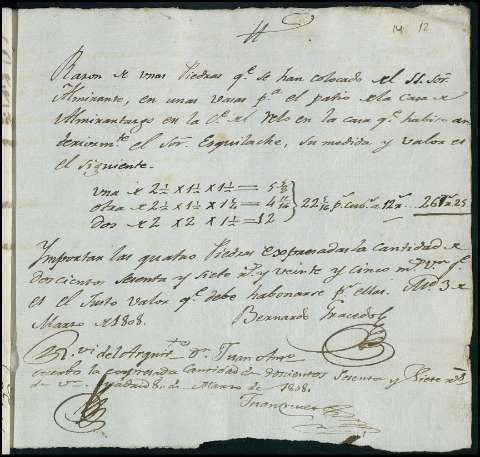 14 12
Razon de unas Piedras q.e se han colocado el S.S. Sor.
Almirante, en unas vasas p.a el patio de la casa de
Almirantazgo en la C.e del Relo en la casa q.e habito an
teriorm.te el Sor. Esquilache, su medida y valor es
el siguiente.
una de 2½ x 1½ x 1½ = 5
otra de 2½ x 1½ x 1 = 4
dos de 2 x 2 x 1½ = 12
22 p.s cub.s a 12 r.s 267 r.s 25
Ymportan las quatro Piedras expresadas la cantidad de
doscientos sesenta y siete r.s y veinte y cinco m.s v.n q.e
es el Justo valor q.e debe habonarse p.r ellas. Mad. 3 de
Marzo de 1808.
Bernardo
R.vi del Arquit.to D.n Juan Ant.
cuenta la expresada Cantidad de doscientos Sesenta y Siete r.s
de v.n Madrid 8 de Marzo de 1808.
Juan